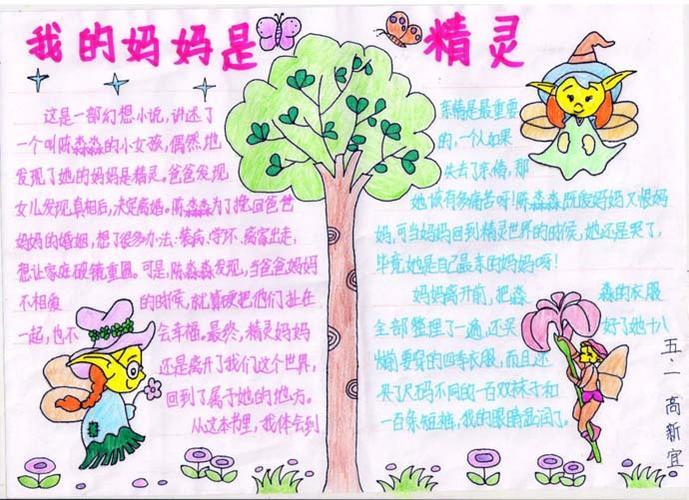 我的妈妈是精灵
这是一部幻想小说,讲述了
一个叫陈淼淼的小女孩,偶然地
发现了她的妈妈是精灵。爸爸发现
女儿发现真相后,决定离婚。陈淼淼为了挽回爸爸
妈妈的婚姻,想了很多办法:装病、学坏、离家出走,
想让家庭破镜重圆。可是,陈淼淼发现,当爸爸妈妈
不相爱的时候,就算硬把他们扯在
一起,也不会幸福。最终,精灵妈妈
还是离开了我们这个世界,
回到了属于她的地方。
从这本书里,我体会到
亲情是最重要
的,一个人如果
失去了亲情,那
她该有多痛苦呀!陈淼淼既怕妈妈又恨妈
妈,可当妈妈回到精灵世界的时候,她还是哭了,
毕竟她是自己最亲的妈妈呀!
妈妈离开前,把淼淼的衣服
全部整理了一遍,还买好了她十八
岁前要穿的四季衣服,而且还
买了尺码不同的一百双袜子和
一百条短裤,我的眼睛湿润了。
五.一高新宜